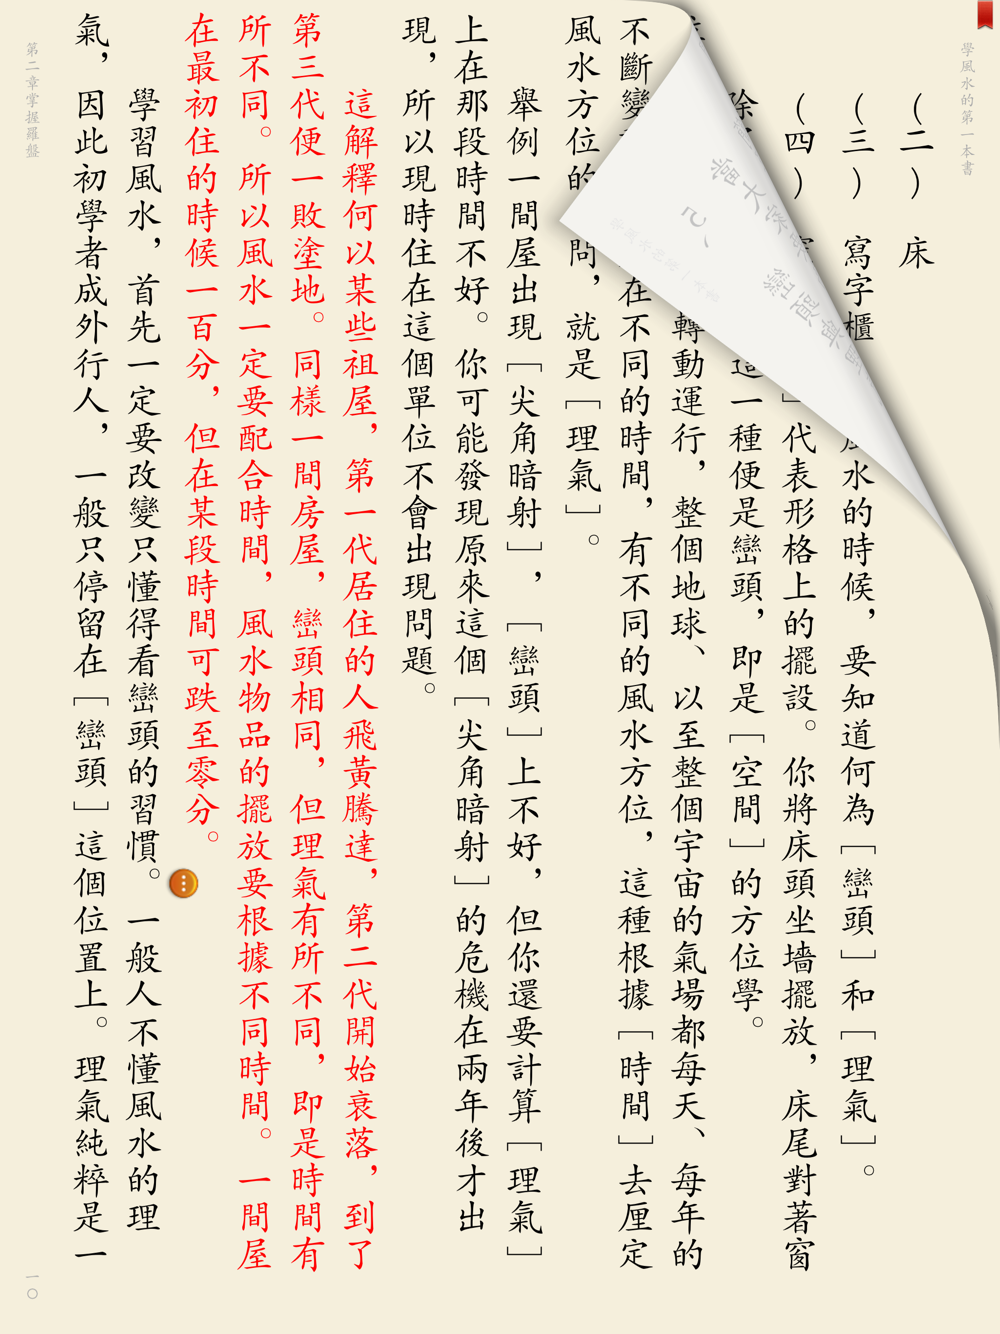 學風水的第一本書
（二）　床
（三）　寫字櫃
水的時候，要知道何為［巒頭］和［理氣］。
（四）
］代表形格上的擺設。你將床頭坐墻擺放，床尾對著窗
除
這一種便是巒頭，即是［空間］的方位學。
轉動運行，整個地球、以至整個宇宙的氣場都每天、每年的
不斷變
在不同的時間，有不同的風水方位，這種根據［時間］去厘定
風水方位的
問，就是［理氣］。
舉例一間屋出現［尖角暗射］，［巒頭］上不好，但你還要計算［理氣］
上在那段時間不好。你可能發現原來這個［尖角暗射］的危機在兩年後才出
現，所以現時住在這個單位不會出現問題。
這解釋何以某些祖屋，第一代居住的人飛黃騰達，第二代開始衰落，到了
第三代便一敗塗地。同樣一間房屋，巒頭相同，但理氣有所不同，即是時間有
所不同。所以風水一定要配合時間，風水物品的擺放要根據不同時間。一間屋
在最初住的時候一百分，但在某段時間可跌至零分。
學習風水，首先一定要改變只懂得看巒頭的習慣。一般人不懂風水的理
氣，因此初學者成外行人，一般只停留在［巒頭］這個位置上。理氣純粹是一
第二章掌握羅盤
一〇